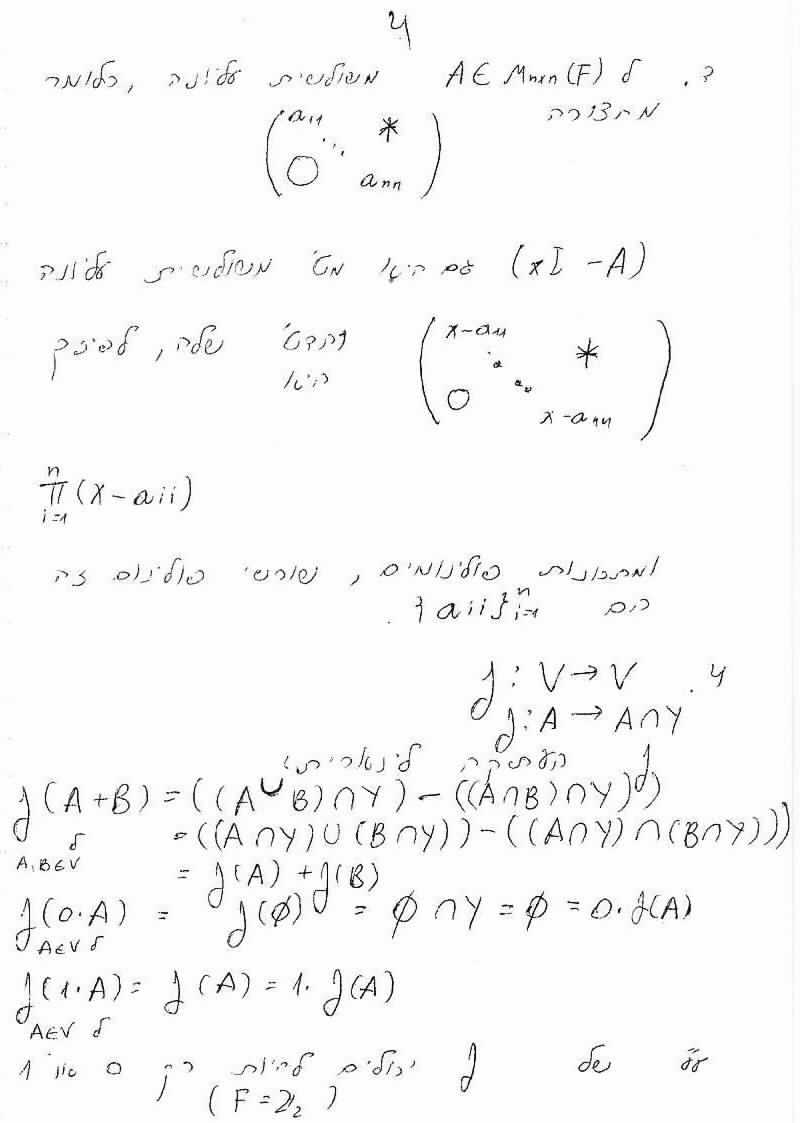 4
ד. ל A∈M_{n×n}(F) משולשית עליונה, כלומר
מהצורה
( a₁₁ * ⋱ 0 aₙₙ )
(xI - A) גם היא מט' משולשית עליונה
( x-a₁₁ * ⋱ 0 x-aₙₙ ) והדט' שלה, לפיכך
היא
∏_{i=1}^{n} (x-aᵢᵢ)
ומתכונות פולינומים, שורשי פולינום זה
הם {aᵢᵢ}ᵢ₌₁ⁿ.
4. f: V → V
f: A → A∩Y
f העתקה לינארית:
f(A+B) = ((A∪B)∩Y) - ((A∩B)∩Y))
ל A,B∈V = ((A∩Y)∪(B∩Y)) - ((A∩Y)∩(B∩Y)))
= f(A) + f(B)
f(0·A) = f(∅) = ∅∩Y = ∅ = 0·f(A)
ל A∈V
f(1·A) = f(A) = 1·f(A)
ל A∈V
ע"ע של f יכולים להיות רק 0 או 1
(F = ℤ₂)